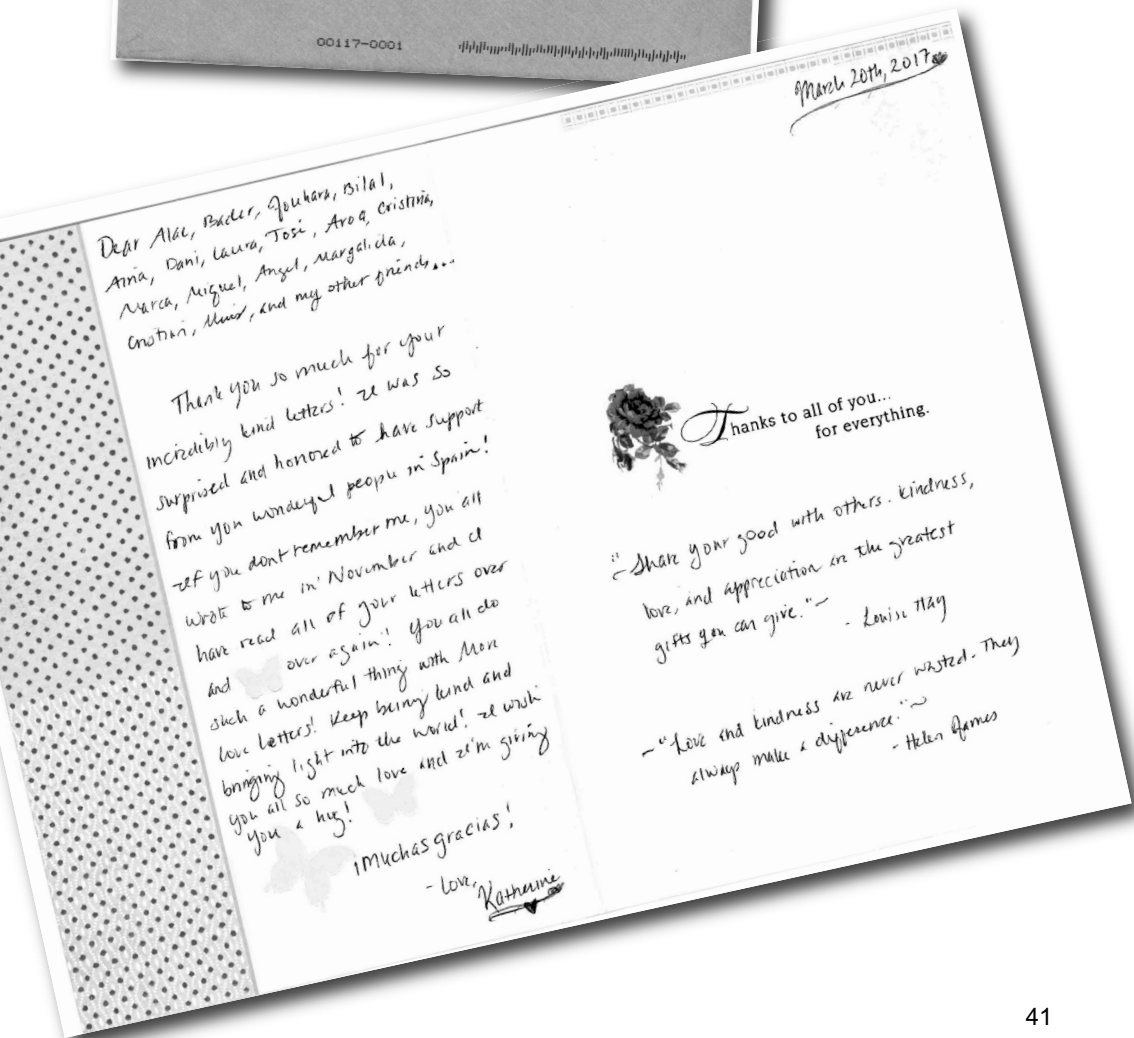 00117-0001
March 20th, 2017
Dear Alae, Bader, Jouhara, Bilal,
Aina, Dani, Laura, José, Aroa, Cristina,
Marca, Miquel, Angel, Margalida,
Cristian, and my other friends...
Thank you so much for your
incredibly kind letters! I was so
surprised and honored to have support
from you wonderful people in Spain!
If you dont remember me, you all
wrote to me in November and I
have read all of your letters over
and over again! You all do
such a wonderful thing with More
Love Letters! Keep being kind and
bringing light into the world! I wish
you all so much love and I'm giving
you a hug!
¡Muchas gracias!
- Love,
Katherine
Thanks to all of you...
for everything.
~"Share your good with others. Kindness,
love, and appreciation are the greatest
gifts you can give."~
- Louise Hay
~"Love and kindness are never wasted. They
always make a difference."~
- Helen James
41